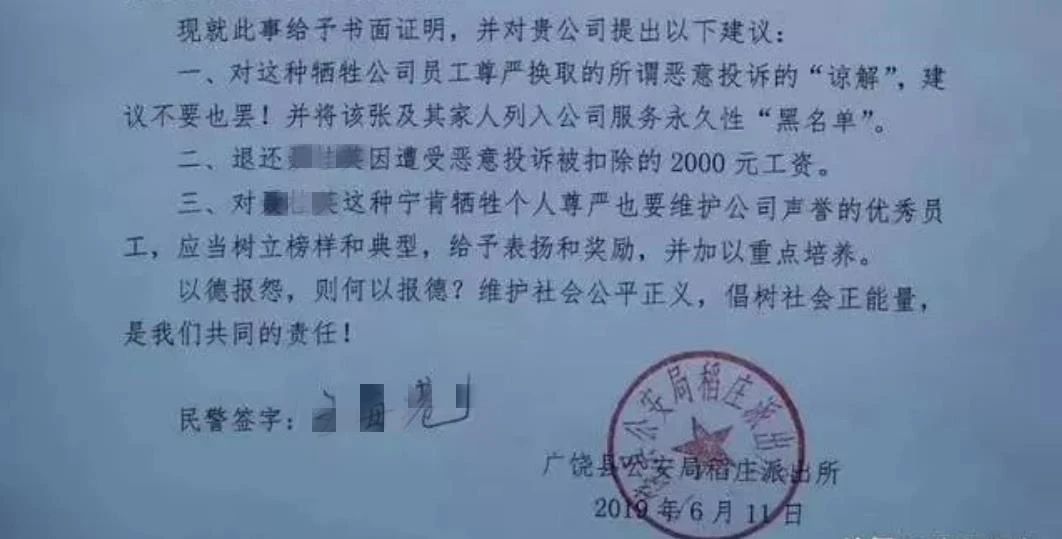 现就此事给予书面证明，并对贵公司提出以下建议：
一、对这种牺牲公司员工尊严换取的所谓恶意投诉的“谅解”，建
议不要也罢！并将该张及其家人列入公司服务永久性“黑名单”。
二、退还 因遭受恶意投诉被扣除的 2000 元工资。
三、对 这种宁肯牺牲个人尊严也要维护公司声誉的优秀员
工，应当树立榜样和典型，给予表扬和奖励，并加以重点培养。
以德报怨，则何以报德？维护社会公平正义，倡树社会正能量，
是我们共同的责任！
民警签字：
公安局稻庄派出
广饶县公安局稻庄派出所
2019 年 6 月 11 日